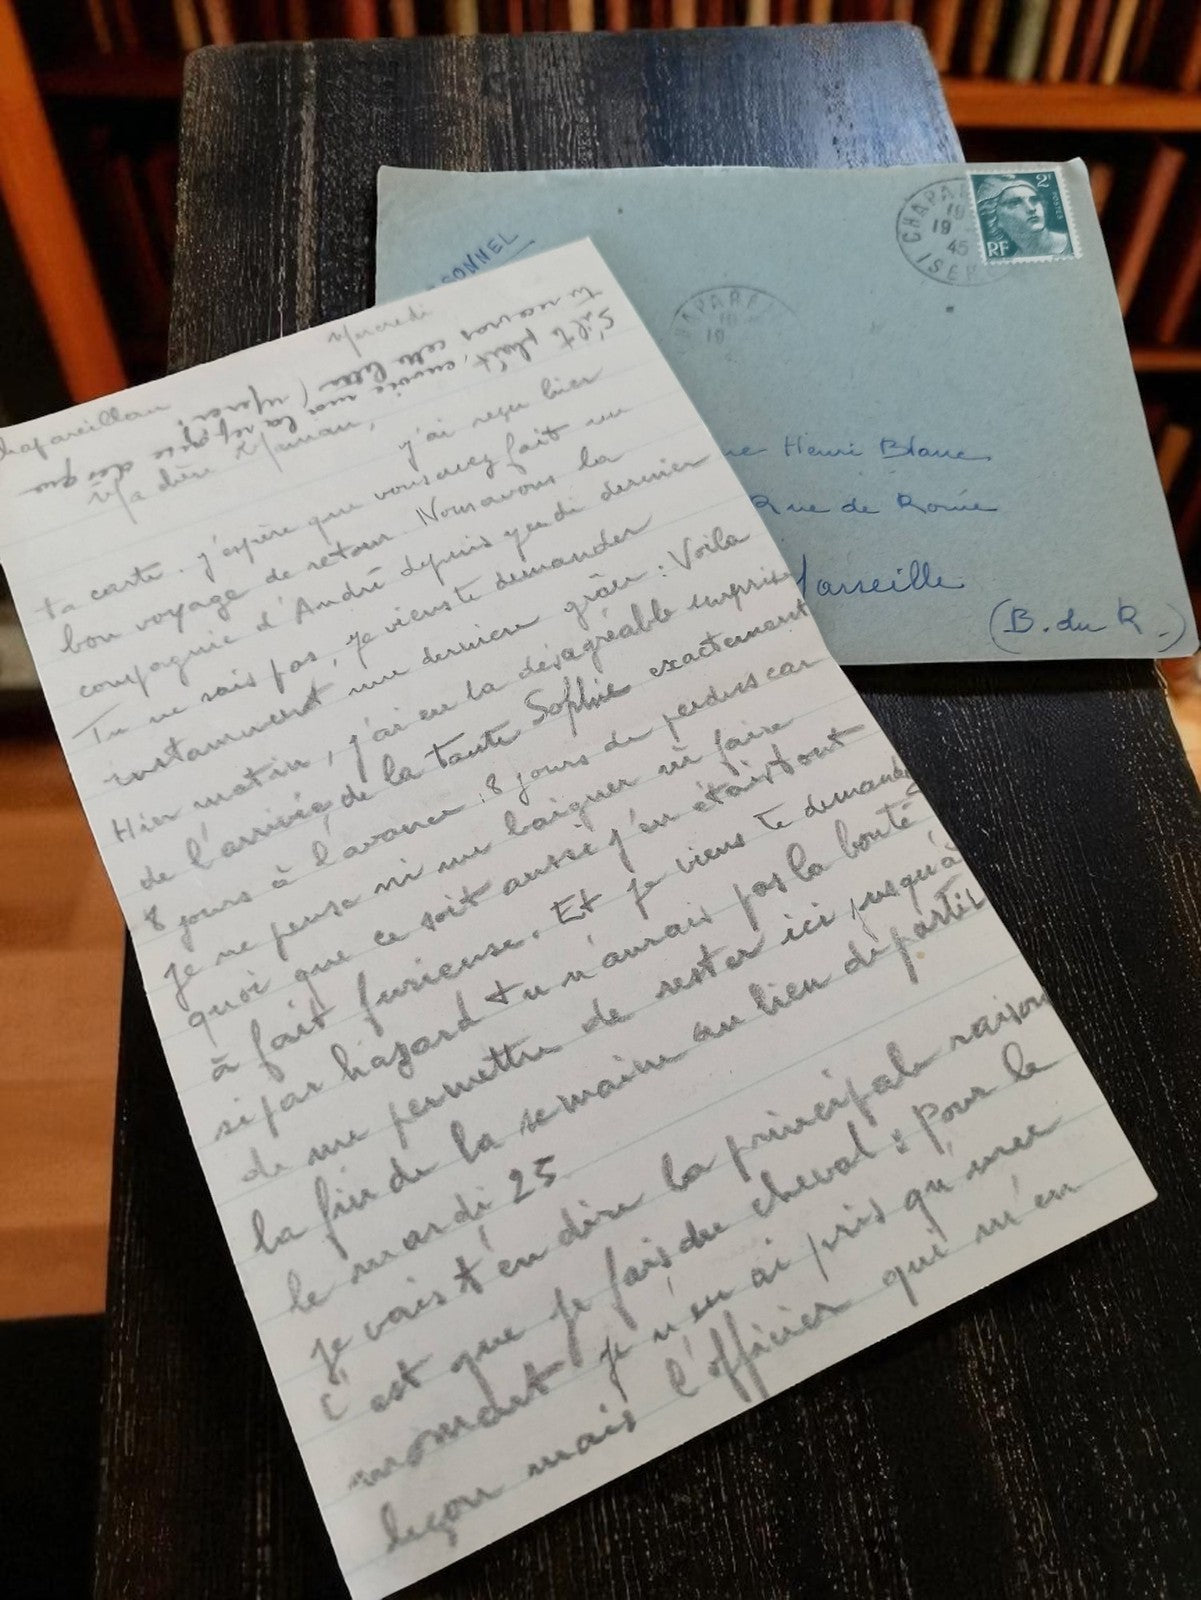 Mercredi
S'il te plaît, envoie moi la réponse dès que
tu recevras cette lettre (Merci)
Ma chère Maman,
j'ai reçu hier
ta carte. j'espère que vous avez fait un
bon voyage de retour. Nous avons la
compagnie d'André depuis jeudi dernier
Tu ne sais pas, je viens te demander
instamment une dernière grâce : Voila
Hier matin, j'ai eu la désagréable surprise
de l'arrivée de la tante Sophie exactement
8 jours à l'avance. 8 jours de perdus car
je ne peux ni me baigner ni faire
quoi que ce soit aussi j'en étais tout
à fait furieuse. Et je viens te demander
si par hazard tu n'aurais pas la bonté
de me permettre de rester ici jusqu'à
la fin de la semaine ou bien de partir
le mardi 25
je vais t'en dire la principale raison
c'est que je fais du cheval : pour le
moment je n'en ai pris qu'une
leçon mais l'officier qui m'en
Henri Blanc
Rue de Rome
Marseille
(B. du R.)
CHAPAR
19
19
45
ISER
2F
POSTES
RF
HAPAREI
19